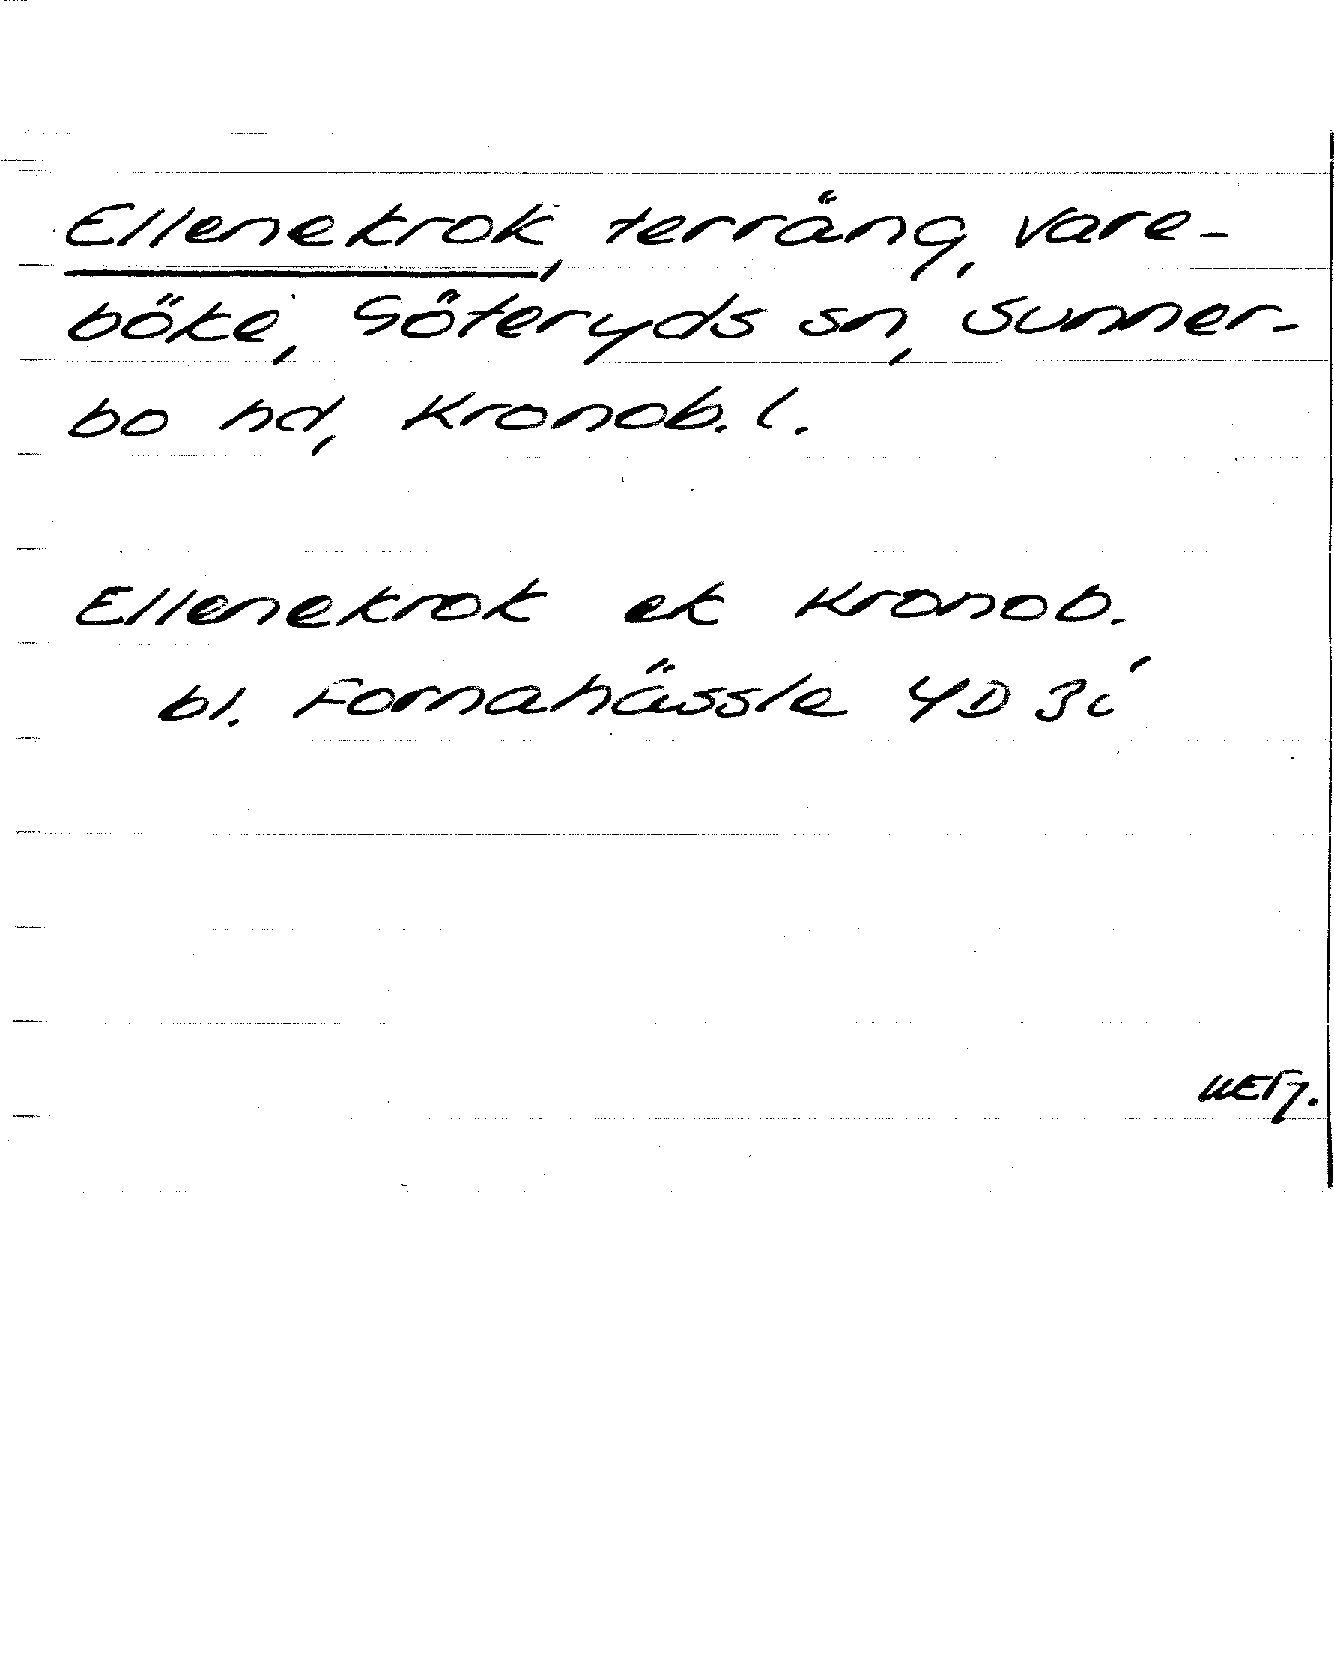 Ellenekrok, terräng, Vare-
böke, Göteryds sn, Sunner-
bo hd, Kronob. l.
Ellenekrok ek Kronob.
bl. Fornahässle 4D 3i